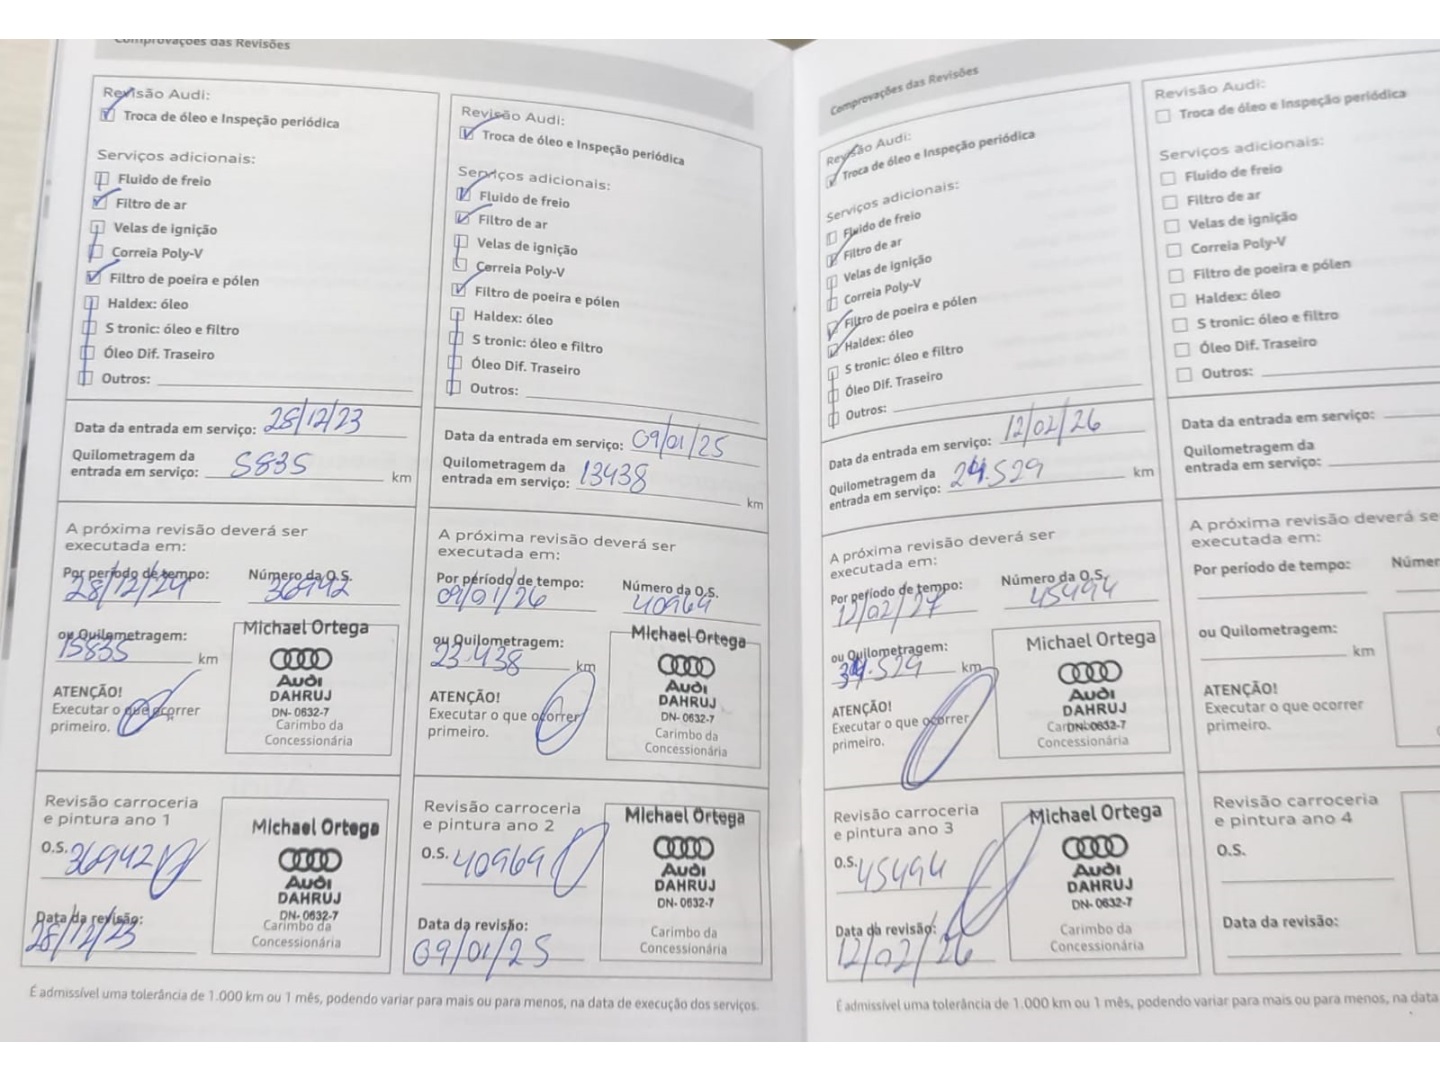 Comprovações das Revisões
Revisão Audi:
Troca de óleo e Inspeção periódica
Serviços adicionais:
Fluido de freio
Filtro de ar
Velas de ignição
Correia Poly-V
Filtro de poeira e pólen
Haldex: óleo
S tronic: óleo e filtro
Óleo Dif. Traseiro
Outros:
Data da entrada em serviço: 28/12/23
Quilometragem da
entrada em serviço: 5835 km
A próxima revisão deverá ser
executada em:
Por período de tempo: Número da O.S.
28/12/24 36942
ou Quilometragem:
15835 km
ATENÇÃO!
Executar o que ocorrer
primeiro.
Michael Ortega
Audi
DAHRUJ
DN- 0632-7
Carimbo da
Concessionária
Revisão carroceria
e pintura ano 1
O.S. 36942
Data da revisão:
28/12/23
Michael Ortega
Audi
DAHRUJ
DN- 0632-7
Carimbo da
Concessionária
Revisão Audi:
Troca de óleo e Inspeção periódica
Serviços adicionais:
Fluido de freio
Filtro de ar
Velas de ignição
Correia Poly-V
Filtro de poeira e pólen
Haldex: óleo
S tronic: óleo e filtro
Óleo Dif. Traseiro
Outros:
Data da entrada em serviço: 09/01/25
Quilometragem da
entrada em serviço: 13438 km
A próxima revisão deverá ser
executada em:
Por período de tempo: Número da O.S.
09/01/26 40969
ou Quilometragem:
23.438 km
ATENÇÃO!
Executar o que ocorrer
primeiro.
Michael Ortega
Audi
DAHRUJ
DN- 0632-7
Carimbo da
Concessionária
Revisão carroceria
e pintura ano 2
O.S. 40969
Data da revisão:
09/01/25
Michael Ortega
Audi
DAHRUJ
DN- 0632-7
Carimbo da
Concessionária
É admissível uma tolerância de 1.000 km ou 1 mês, podendo variar para mais ou para menos, na data de execução dos serviços.
Comprovações das Revisões
Revisão Audi:
Troca de óleo e Inspeção periódica
Serviços adicionais:
Fluido de freio
Filtro de ar
Velas de ignição
Correia Poly-V
Filtro de poeira e pólen
Haldex: óleo
S tronic: óleo e filtro
Óleo Dif. Traseiro
Outros:
Data da entrada em serviço: 12/02/26
Quilometragem da
entrada em serviço: 24.529 km
A próxima revisão deverá ser
executada em:
Por período de tempo: Número da O.S.
12/02/27 45494
ou Quilometragem:
34.529 km
ATENÇÃO!
Executar o que ocorrer
primeiro.
Michael Ortega
Audi
DAHRUJ
DN- 0632-7
Carimbo da
Concessionária
Revisão carroceria
e pintura ano 3
O.S. 45494
Data da revisão:
12/02/26
Michael Ortega
Audi
DAHRUJ
DN- 0632-7
Carimbo da
Concessionária
Revisão Audi:
Troca de óleo e Inspeção periódica
Serviços adicionais:
Fluido de freio
Filtro de ar
Velas de ignição
Correia Poly-V
Filtro de poeira e pólen
Haldex: óleo
S tronic: óleo e filtro
Óleo Dif. Traseiro
Outros:
Data da entrada em serviço:
Quilometragem da
entrada em serviço:
A próxima revisão deverá se
executada em:
Por período de tempo: Númer
ou Quilometragem:
km
ATENÇÃO!
Executar o que ocorrer
primeiro.
Revisão carroceria
e pintura ano 4
O.S.
Data da revisão:
É admissível uma tolerância de 1.000 km ou 1 mês, podendo variar para mais ou para menos, na data